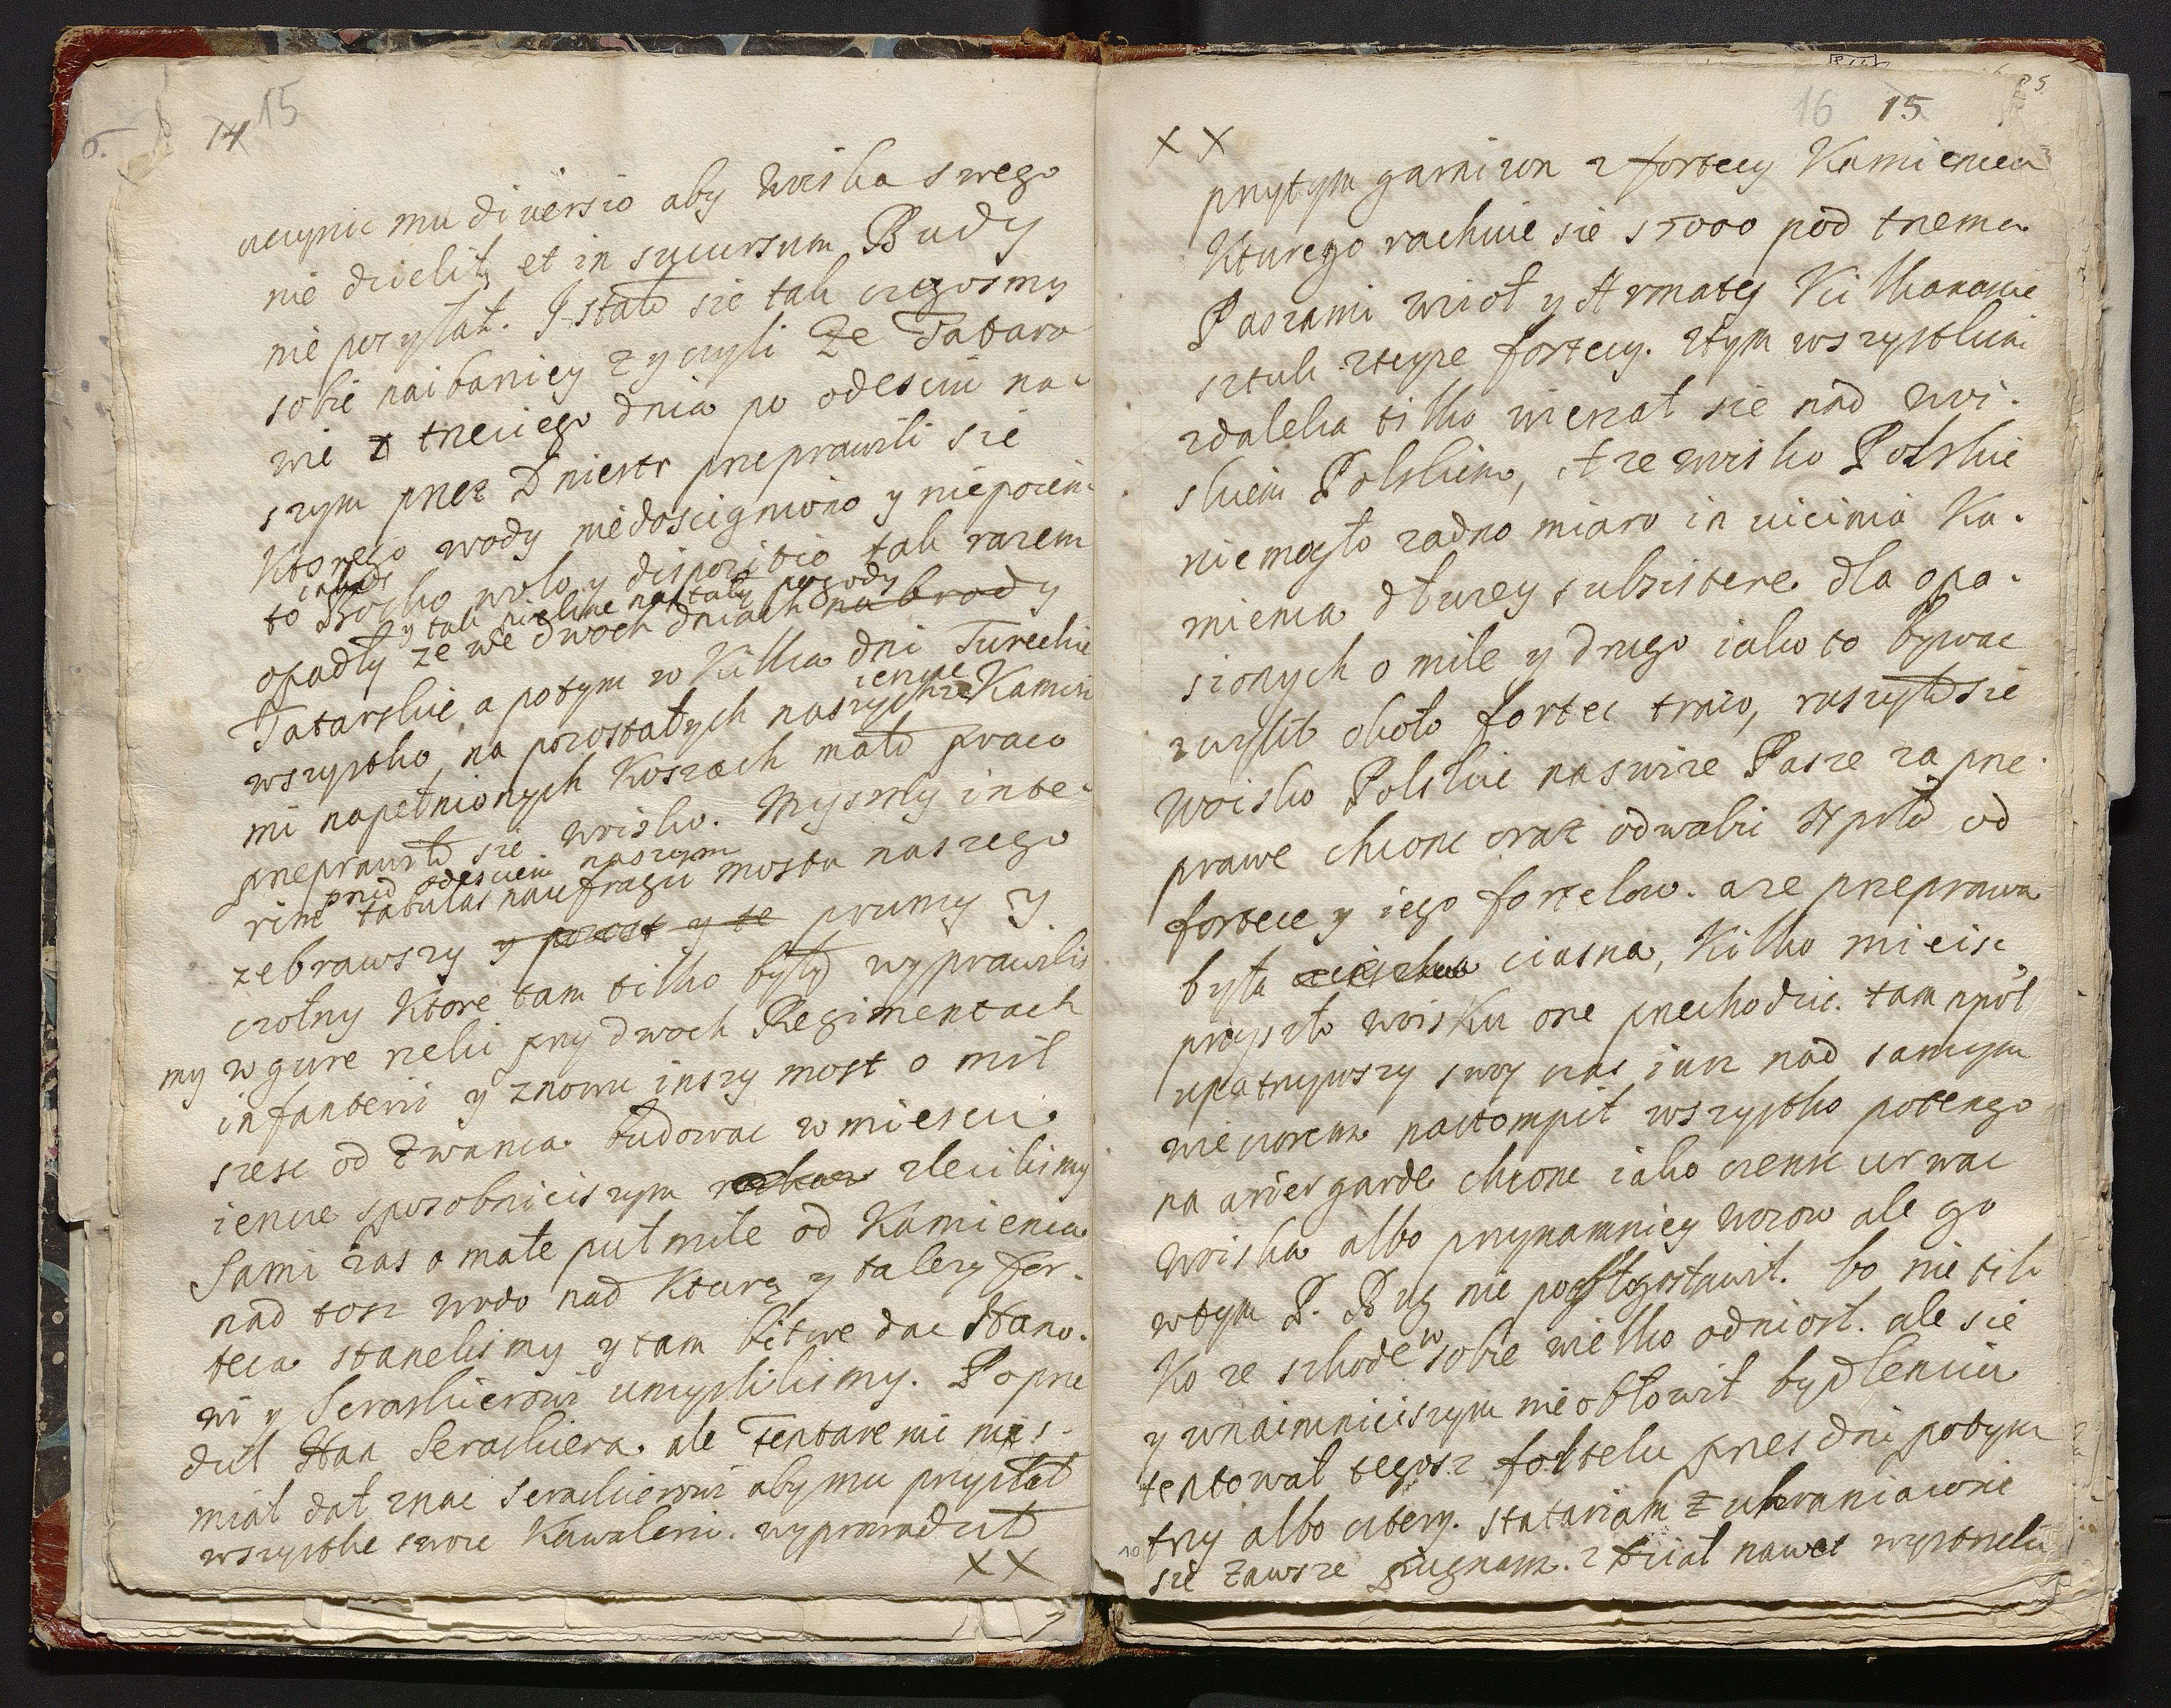 6. 14 15
uczynic mu diversio aby woiska swego
nie dzielił et in sucursum Budy
nie posyłał. J stało sie tak czegosmy
sobie naibarziey zyczyli że Tataro
wie trzeciego dnia po odesciu na-
szym przez Dniestr przeprawili sie
Ktorego wody niedoscigniono y niepoient
to Bosko wolo y dispositio tak razem
y tak pieline nastały pogody
opadły ze we dwoch dniach na brody
Tatarskie, a potym w Kilka dni Tureckie
wszystko na pozostałych naszych ze Kamien
iemie
mi napełnionych Koszach mało praco
przeprawiło sie woisko. Mysmy inte-
przed odesciem naszym
rim tabulas naufragii mostu naszego
zebrawszy y te prumy y
czołny Ktore tam tilko były wyprawilis
my w gure rzeki przy dwoch Regimentach
infanterii y znowu inszy most o mil
szesc od Zwanca budowac w miescu
iencze sposobnieiszym zlecilismy
Sami zas o małe puł mile od Kamienca
nad tosz wodo nad Kturą y ta lezy for-
teca stanelismy y tam bitwe dac Hano-
wi y Seraskierowi umyslilismy. Poprze
dził Han Seraskiera. ale tentare nic nie s-
miał dał znac Seraskierowi aby mu przysłał
wszystke swoie Kawalerii. wyprowadził
XX
16 15
XX
przytym garnizon z fortecy Kamienca
Kturego rachuie sie 15000 pod trzema
Paszami wzioł y Armaty Kilkanascie
sztuk zteyze fortecy. ztym wszystkim
zdaleka tilko wieszał sie nad woi-
skiem Polskiem, A ze woisko Polskie
nie mogło zadno miaro in vicinia Ka-
mienca dłuzey subsistere dla opa-
sionych o mile y drugo iako to bywac
zwykło około fortec trawo, ruszyło sie
Woisko Polskie naswize Pasze za prze-
prawe chconc oraz odwabic Hprla od
fortece y iego fortelow. a ze przeprawa
była ciasna, Kilko mieisc
przyszło woisku one przechodzic. tam npół
upatrzywszy swoy czas iusz nad samym
wieczorem nastompił wszystko potengo
na ariergarde chconc iako czensc urwac
woiska albo przynamniey wozow ale go
wtym P. Bug nie pobłogosławił. bo nie til-
Ko ze szkode w sobie wielko odniosł. ale sie
y wnaimnieiszym nie obłowił bydlenciu
tentował tegosz fortelu przes dni potym
trzy albo cztery. statariam z ukraniaionie
sie zawsze pugnam. Zdział nawet wystrzelu